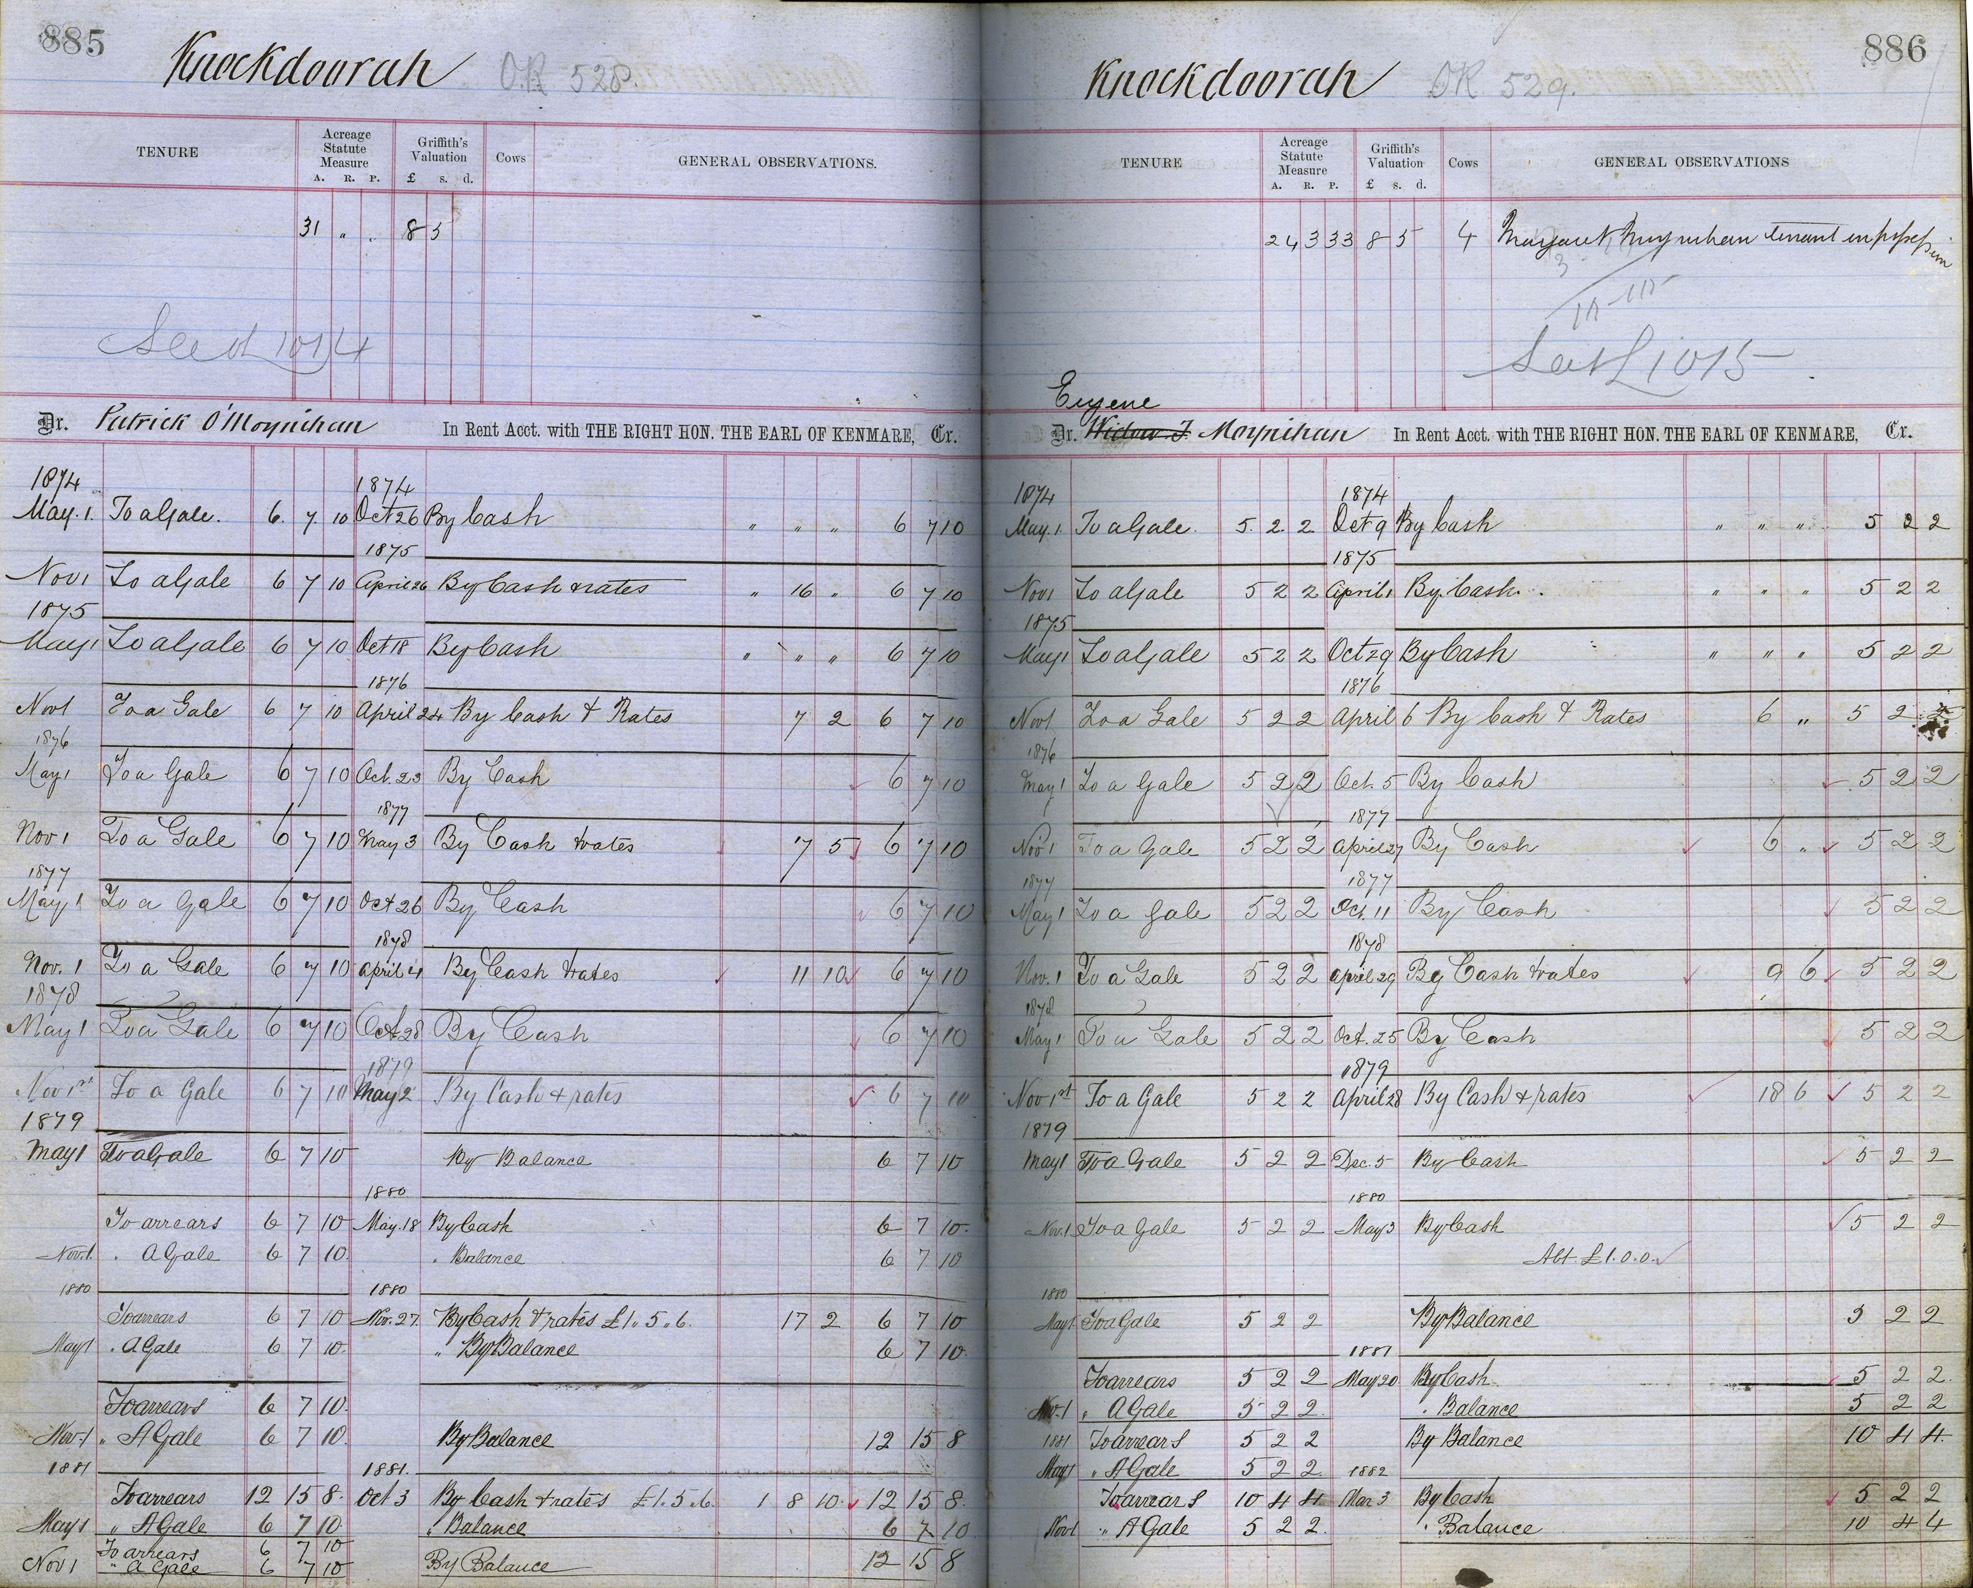 885
Knockdoorah OR 528.
TENURE Acreage Statute Measure A. R. P. Griffith's Valuation £ s. d. Cows GENERAL OBSERVATIONS.
31 " " 8 5
See L 1014
Dr. Patrick O'Moynihan In Rent Acct. with THE RIGHT HON. THE EARL OF KENMARE, Cr.
1874 1874
May. 1. To a Gale. 6. 7. 10 Oct 26 By Cash " " " 6 7 10
1875
Nov 1 To a Gale 6 7 10 April 26 By Cash & rates " 16 " 6 7 10
1875
May 1 To a Gale 6 7 10 Oct 18 By Cash " " " 6 7 10
1876
Nov 1 To a Gale 6 7 10 April 24 By Cash & Rates 7 2 6 7 10
1876
May 1 To a Gale 6 7 10 Oct. 23 By Cash 6 7 10
1877
Nov 1 To a Gale 6 7 10 May 3 By Cash & rates 7 5 6 7 10
1877
May 1 To a Gale 6 7 10 Oct 26 By Cash 6 7 10
1878
Nov. 1 To a Gale 6 7 10 April 4 By Cash & rates 11 10 6 7 10
1878
May 1 To a Gale 6 7 10 Oct. 28 By Cash 6 7 10
1879
Nov 1st To a Gale 6 7 10 May 2 By Cash & rates 6 7 10
1879
May 1 To a Gale 6 7 10 By Balance 6 7 10
1880
To arrears 6 7 10 May. 18 By Cash 6 7 10.
Nov. 1. " A Gale 6 7 10. " Balance 6 7 10
1880 1880
To arrears 6 7 10 Nov. 27. By Cash & rates £1. 5. 6. 17 2 6 7 10
May 1 " A Gale 6 7 10. " By Balance 6 7 10.
To arrears 6 7 10.
Nov. 1 " A Gale 6 7 10. By Balance 12 15 8
1881 1881.
To arrears 12 15 8. Oct 3 By Cash & rates £1. 5. 6. 1 8 10. 12 15 8.
May 1 " A Gale 6 7 10. " Balance 6 7 10
To arrears 6 7 10
Nov 1 " A Gale 6 7 10 By Balance 12 15 8
886
Knockdoorah OR 529.
TENURE Acreage Statute Measure A. R. P. Griffith's Valuation £ s. d. Cows GENERAL OBSERVATIONS
24 3 33 8 5 4 Margaret Moynihan tenant in possession
See L 1015
Eugene
Dr. Widow J. Moynihan In Rent Acct. with THE RIGHT HON. THE EARL OF KENMARE, Cr.
1874 1874
May. 1. To a Gale. 5. 2. 2 Oct 9 By Cash " " " 5 2 2
1875
Nov 1 To a Gale 5 2 2 April 1 By Cash. " " " 5 2 2
1875
May 1 To a Gale 5 2 2 Oct 29 By Cash " " " 5 2 2
1876
Nov 1 To a Gale 5 2 2 April 6 By Cash & Rates 6 " 5 2 2
1876
May 1 To a Gale 5 2 2 Oct. 5 By Cash 5 2 2
1877
Nov 1 To a Gale 5 2 2 April 27 By Cash 6 " 5 2 2
1877 1877
May 1 To a Gale 5 2 2 Oct. 11 By Cash 5 2 2
1878
Nov. 1 To a Gale 5 2 2 April 29 By Cash & rates 9 6 5 2 2
1878
May 1 To a Gale 5 2 2 Oct. 25 By Cash 5 2 2
1879
Nov 1st To a Gale 5 2 2 April 28 By Cash & rates 18 6 5 2 2
1879
May 1 To a Gale 5 2 2 Dec. 5 By Cash 5 2 2
1880
Nov. 1 To a Gale 5 2 2 May 3 By Cash 5 2 2
Abt. £1. 0. 0.
1880
May 1 To a Gale 5 2 2 By Balance 5 2 2
1881
To arrears 5 2 2 May 20 By Cash 5 2 2.
Nov. 1 " A Gale 5 2 2. " Balance 5 2 2
1881 To arrears 5 2 2 By Balance 10 4 4.
May 1 " A Gale 5 2 2. 1882
To arrears 10 4 4. Mar 3 By Cash 5 2 2
Nov 1 " A Gale 5 2 2. " Balance 10 4 4